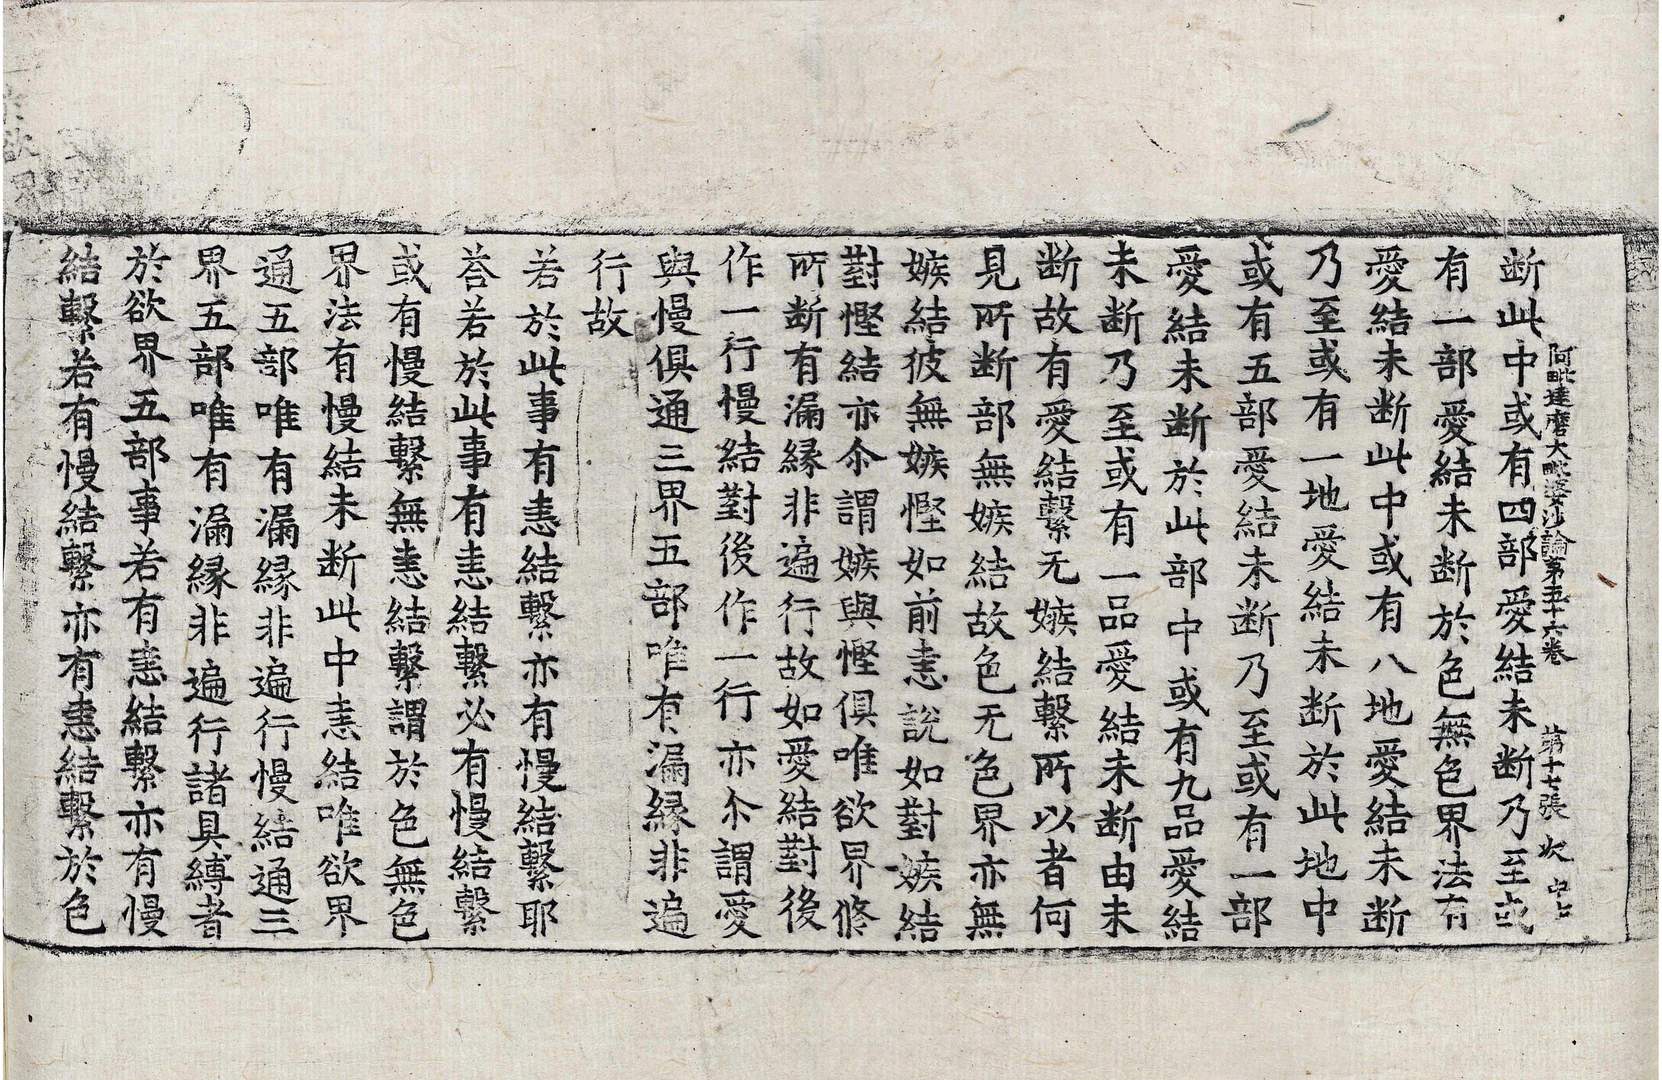 阿毗達磨大毗婆沙論第五十六卷 第十七張 次
断此中或有四部愛結未断乃至或
有一部愛結未断於色無色界法有
愛結未断此中或有八地愛結未断
乃至或有一地愛結未断於此地中
或有五部愛結未断乃至或有一部
愛結未断於此部中或有九品愛結
未断乃至或有一品愛結未断由未
断故有愛結繫无嫉結繫所以者何
見所断部無嫉結故色无色界亦無
嫉結彼無嫉慳如前恚說如對嫉結
對慳結亦尒謂嫉與慳俱唯欲界修
所断有漏緣非遍行故如愛結對後
作一行慢結對後作一行亦尒謂愛
與慢俱通三界五部唯有漏緣非遍
行故
若於此事有恚結繫亦有慢結繫耶
荅若於此事有恚結繫必有慢結繫
或有慢結繫無恚結繫謂於色無色
界法有慢結未断此中恚結唯欲界
通五部唯有漏緣非遍行慢結通三
界五部唯有漏緣非遍行諸具縛者
於欲界五部事若有恚結繫亦有慢
結繫若有慢結繫亦有恚結繫於色